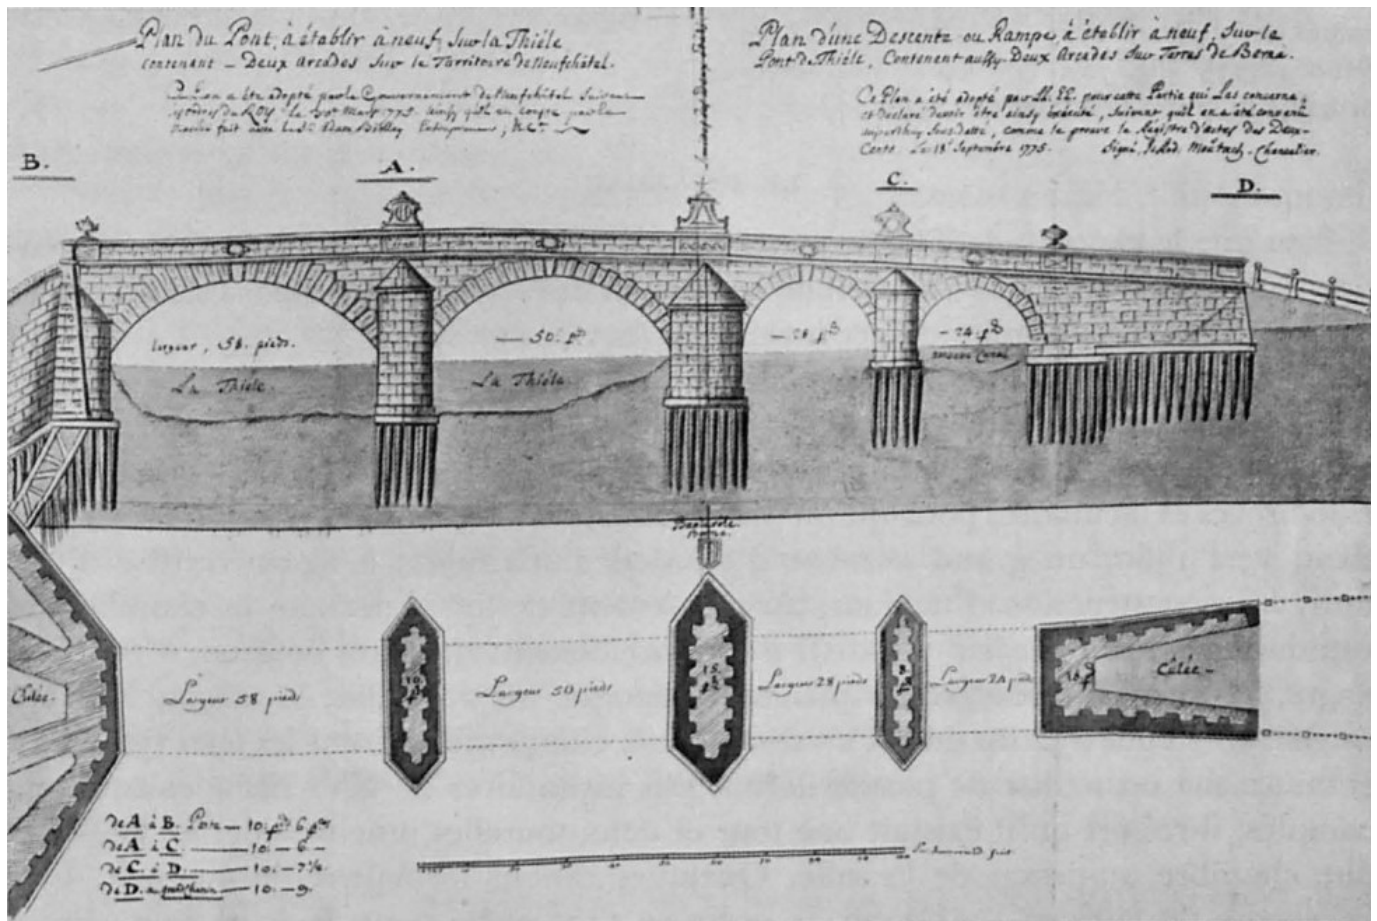 Plan du Pont, à établir à neuf, Sur la Thiéle
contenant – Deux Arcades Sur le Territoire de Neufchâtel.
a été adopté par le Gouvernement de Neufchâtel Suivant
ordres du ROY. 1775.
fait avec le Sr. Entrepreneur, &c.
Plan d'une Descente ou Rampe, à établir à neuf, Sur le
Pont de Thiéle, Contenant aussy Deux Arcades Sur Terres de Berne.
Ce Plan a été adopté par LL. EE. pour cette Partie qui Les concerne
et déclaré devoir être ainsy exécuté, suivant qu'il en a été convenu
comme le prouve le Registre d'actes des Deux-
Cents. Le 18e Septembre 1775. Signé, Chancelier.
B.
A.
C.
D.
largeur, 58. pieds.
50. pds
28. pds
24. pds
La Thiéle.
La Thiéle
Canal
Largeur 58 pieds
Largeur 50 pieds
Largeur 28 pieds
Largeur 24 pieds
10
15
8
16
Culée
Culée
de A à B. Pon — 10 pds 6 pces
de A à C. — 10 – 6 –
de C à D. — 10 – 7½
de D — 10 – 9.